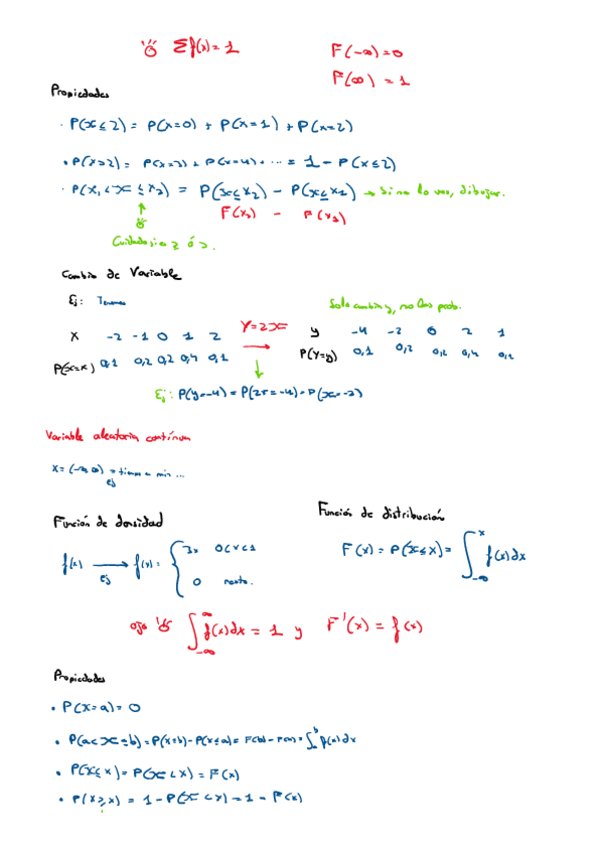 Σf(x) = 1
F(-∞) = 0
F(∞) = 1
Propiedades
· P(x ≤ 2) = P(x=0) + P(x=1) + P(x=2)
· P(x>2) = P(x=3) + P(x=4) + ... = 1 - P(x≤2)
· P(x₁ < x ≤ x₂) = P(x≤x₂) - P(x≤x₁) → si no lo ves, dibujar.
F(x₂) - F(x₁)
Cuidado si es ≥ ó >.
Cambio de Variable
Ej: Tenemos
Solo cambia y, no las prob.
x -2 -1 0 1 2
Y=2x
y -4 -2 0 2 1
P(x=x) 0,1 0,2 0,2 0,4 0,1
P(Y=y) 0,1 0,2 0,2 0,4 0,2
Ej: P(y=-4) = P(2x=-4) = P(x=-2)
Variable aleatoria contínua
x = (-∞, ∞) = tiempo en min ...
ej
Función de densidad
Función de distribución
f(x) → f(x) = { 3x 0<x<1
ej
0 resto.
F(x) = P(x≤x) = ∫ f(x)dx
x
-∞
ojo ∫ f(x)dx = 1 y F'(x) = f(x)
∞
-∞
Propiedades
· P(x=a) = 0
· P(a<x≤b) = P(x≤b) - P(x≤a) = F(b) - F(a) = ∫ₐᵇ f(x)dx
· P(x≤x) = P(x<x) = F(x)
· P(x≥x) = 1 - P(x<x) = 1 - F(x)